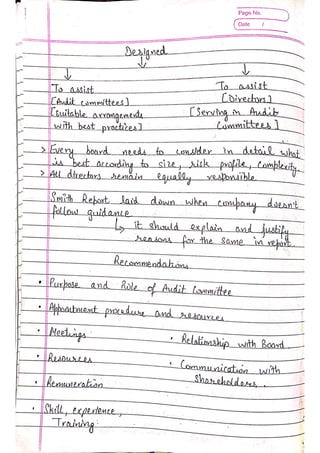 Page No.
Date /
Designed
To assist
[Audit committees]
[Suitable arrangements
with best practices]
To assist
[Directors]
[Serving in Audit
Committees]
> Every board needs to consider in detail what
is best according to size, risk profile, complexity.
> All directors remain equally responsible.
Smith Report laid down when company doesn't
follow guidance
↳ it should explain and justify
reasons for the same in report.
Recommendations
• Purpose and Role of Audit Committee
• Appointment procedure and resources
• Meetings
• Relationship with Board
• Resources
• Communication with
Shareholders.
• Remuneration
• Skill, experience,
Training